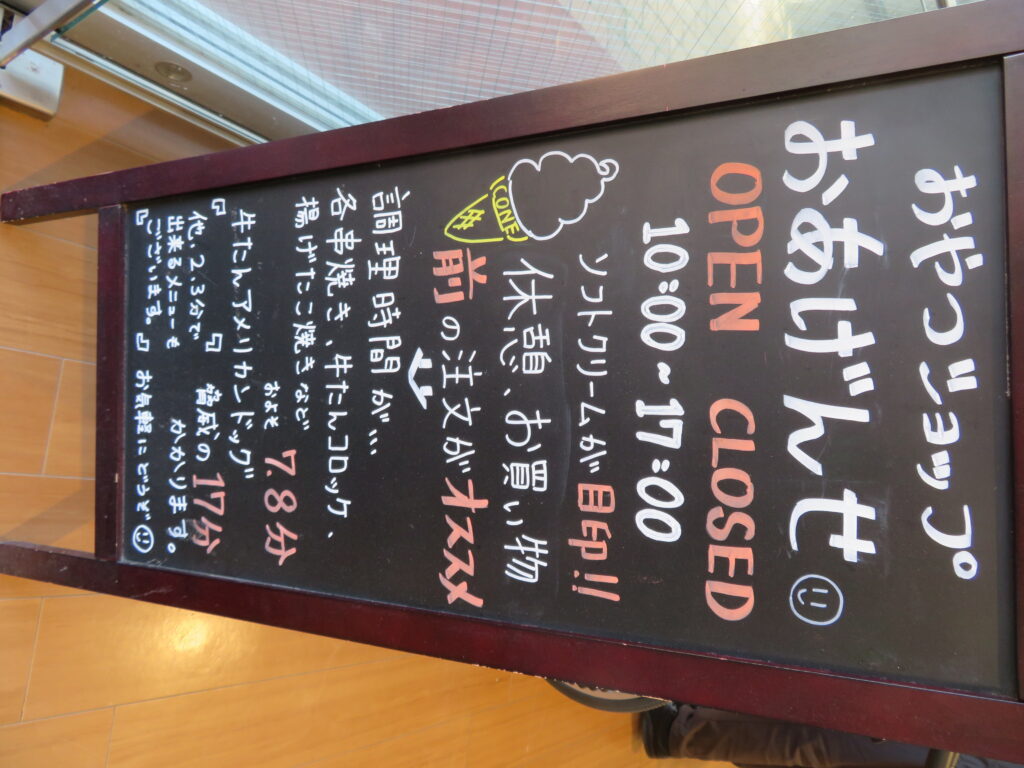 おやつショップ
おあげんせ
OPEN CLOSED
10:00~17:00
ソフトクリームが目印!!
CONE
休憩、お買い物
前の注文がオススメ
調理時間が…
各串焼き、牛たんコロッケ、
揚げたこ焼きなど
およそ 7.8分
牛たんアメリカンドッグ
脅威の 17分
かかります。
『他、2.3分で
出来るメニューも
ございます。』
お気軽にどうぞ